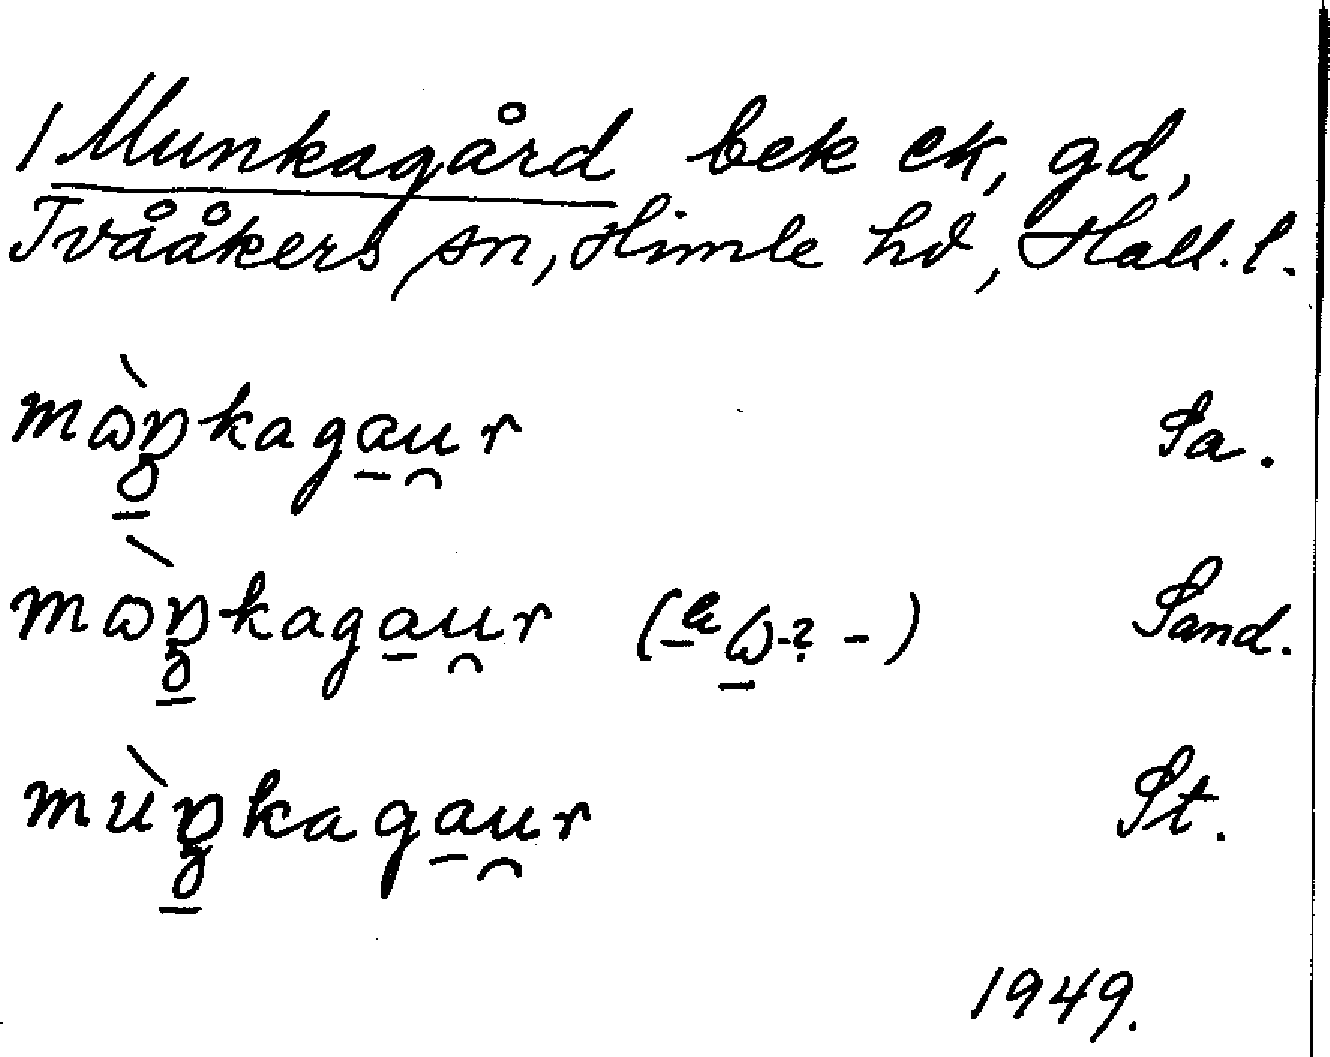 1 Munkagård bek ek, gd,
Tvååkers sn, Himle hd, Hall. l.
mὼŋkagau̯r Sa.
mὼŋkagau̯r Sand.
mùŋkagau̯r St.
1949.